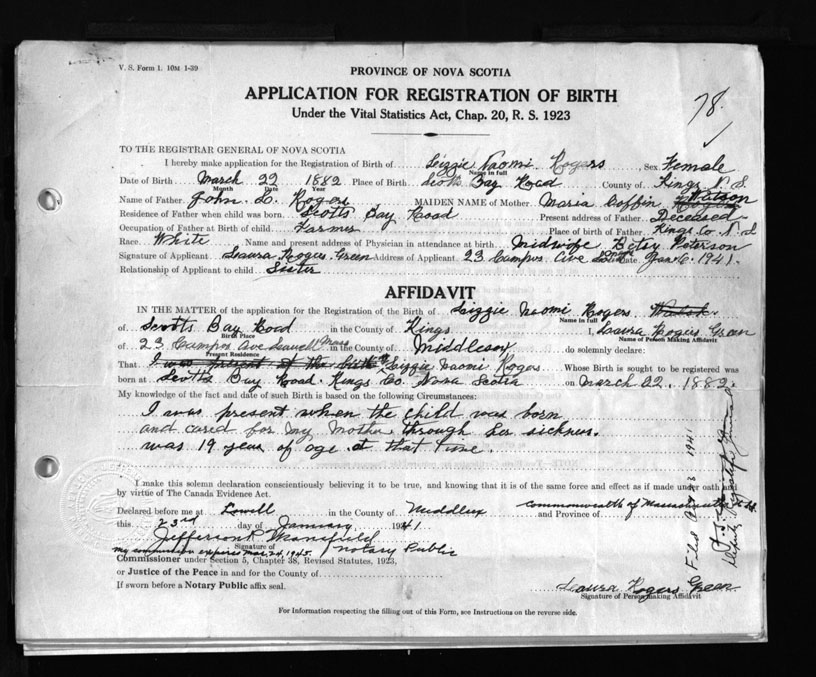 V. S. Form 1. 10M 1-39
PROVINCE OF NOVA SCOTIA
APPLICATION FOR REGISTRATION OF BIRTH
Under the Vital Statistics Act, Chap. 20, R. S. 1923
78.
TO THE REGISTRAR GENERAL OF NOVA SCOTIA
I hereby make application for the Registration of Birth of Lizzie Naomi Rogers, Sex Female
Name in full
Date of Birth March 22 1882 Place of Birth Scots Bay Road County of Kings N. S.
Month Date Year
Name of Father John Rogers MAIDEN NAME of Mother Maria Coffin Watson
Residence of Father when child was born Scotts Bay Road Present address of Father Deceased
Occupation of Father at Birth of Child Farmer Place of birth of Father Kings Co N. S
Race White Name and present address of Physician in attendance at birth Midwife Betsy Peterson
Signature of Applicant Laura Rogers Green Address of Applicant 23 Campus Ave Date Jan 6. 1941.
Relationship of Applicant to child Sister
AFFIDAVIT
IN THE MATTER of the application for the Registration of the Birth of Lizzie Naomi Rogers
Name in full
of Scotts Bay Road in the County of Kings I, Laura Rogers Green
Birth Place Name of Person Making Affidavit
of 23 Campus Ave Mass in the County of Middlesex do solemnly declare:
Present Residence
That I was present at the birth Lizzie Naomi Rogers. Whose Birth is sought to be registered was
born at Scotts Bay Road. Kings Co. Nova Scotia on March 22. 1882.
My knowledge of the fact and date of such Birth is based on the following Circumstances:
I was present when the child was born
and cared for my Mother through her sickness.
was 19 years of age at that time.
I make this solemn declaration conscientiously believing it to be true, and knowing that it is of the same force and effect as if made under oath and
by virtue of The Canada Evidence Act.
Declared before me at Lowell in the County of Middlesex and Province of Commonwealth of Massachusetts
this 23rd day of January 1941
Jefferson Mansfield
Signature of
my commission expires Mar. 24, 1945. Notary Public
Commissioner under Section 5, Chapter 38, Revised Statutes, 1923,
or Justice of the Peace in and for the County of
If sworn before a Notary Public affix seal.
Laura Rogers Green
Signature of Person Making Affidavit
For Information respecting the filling out of this Form, see Instructions on the reverse side.
Filed 1941
Deputy Registrar General